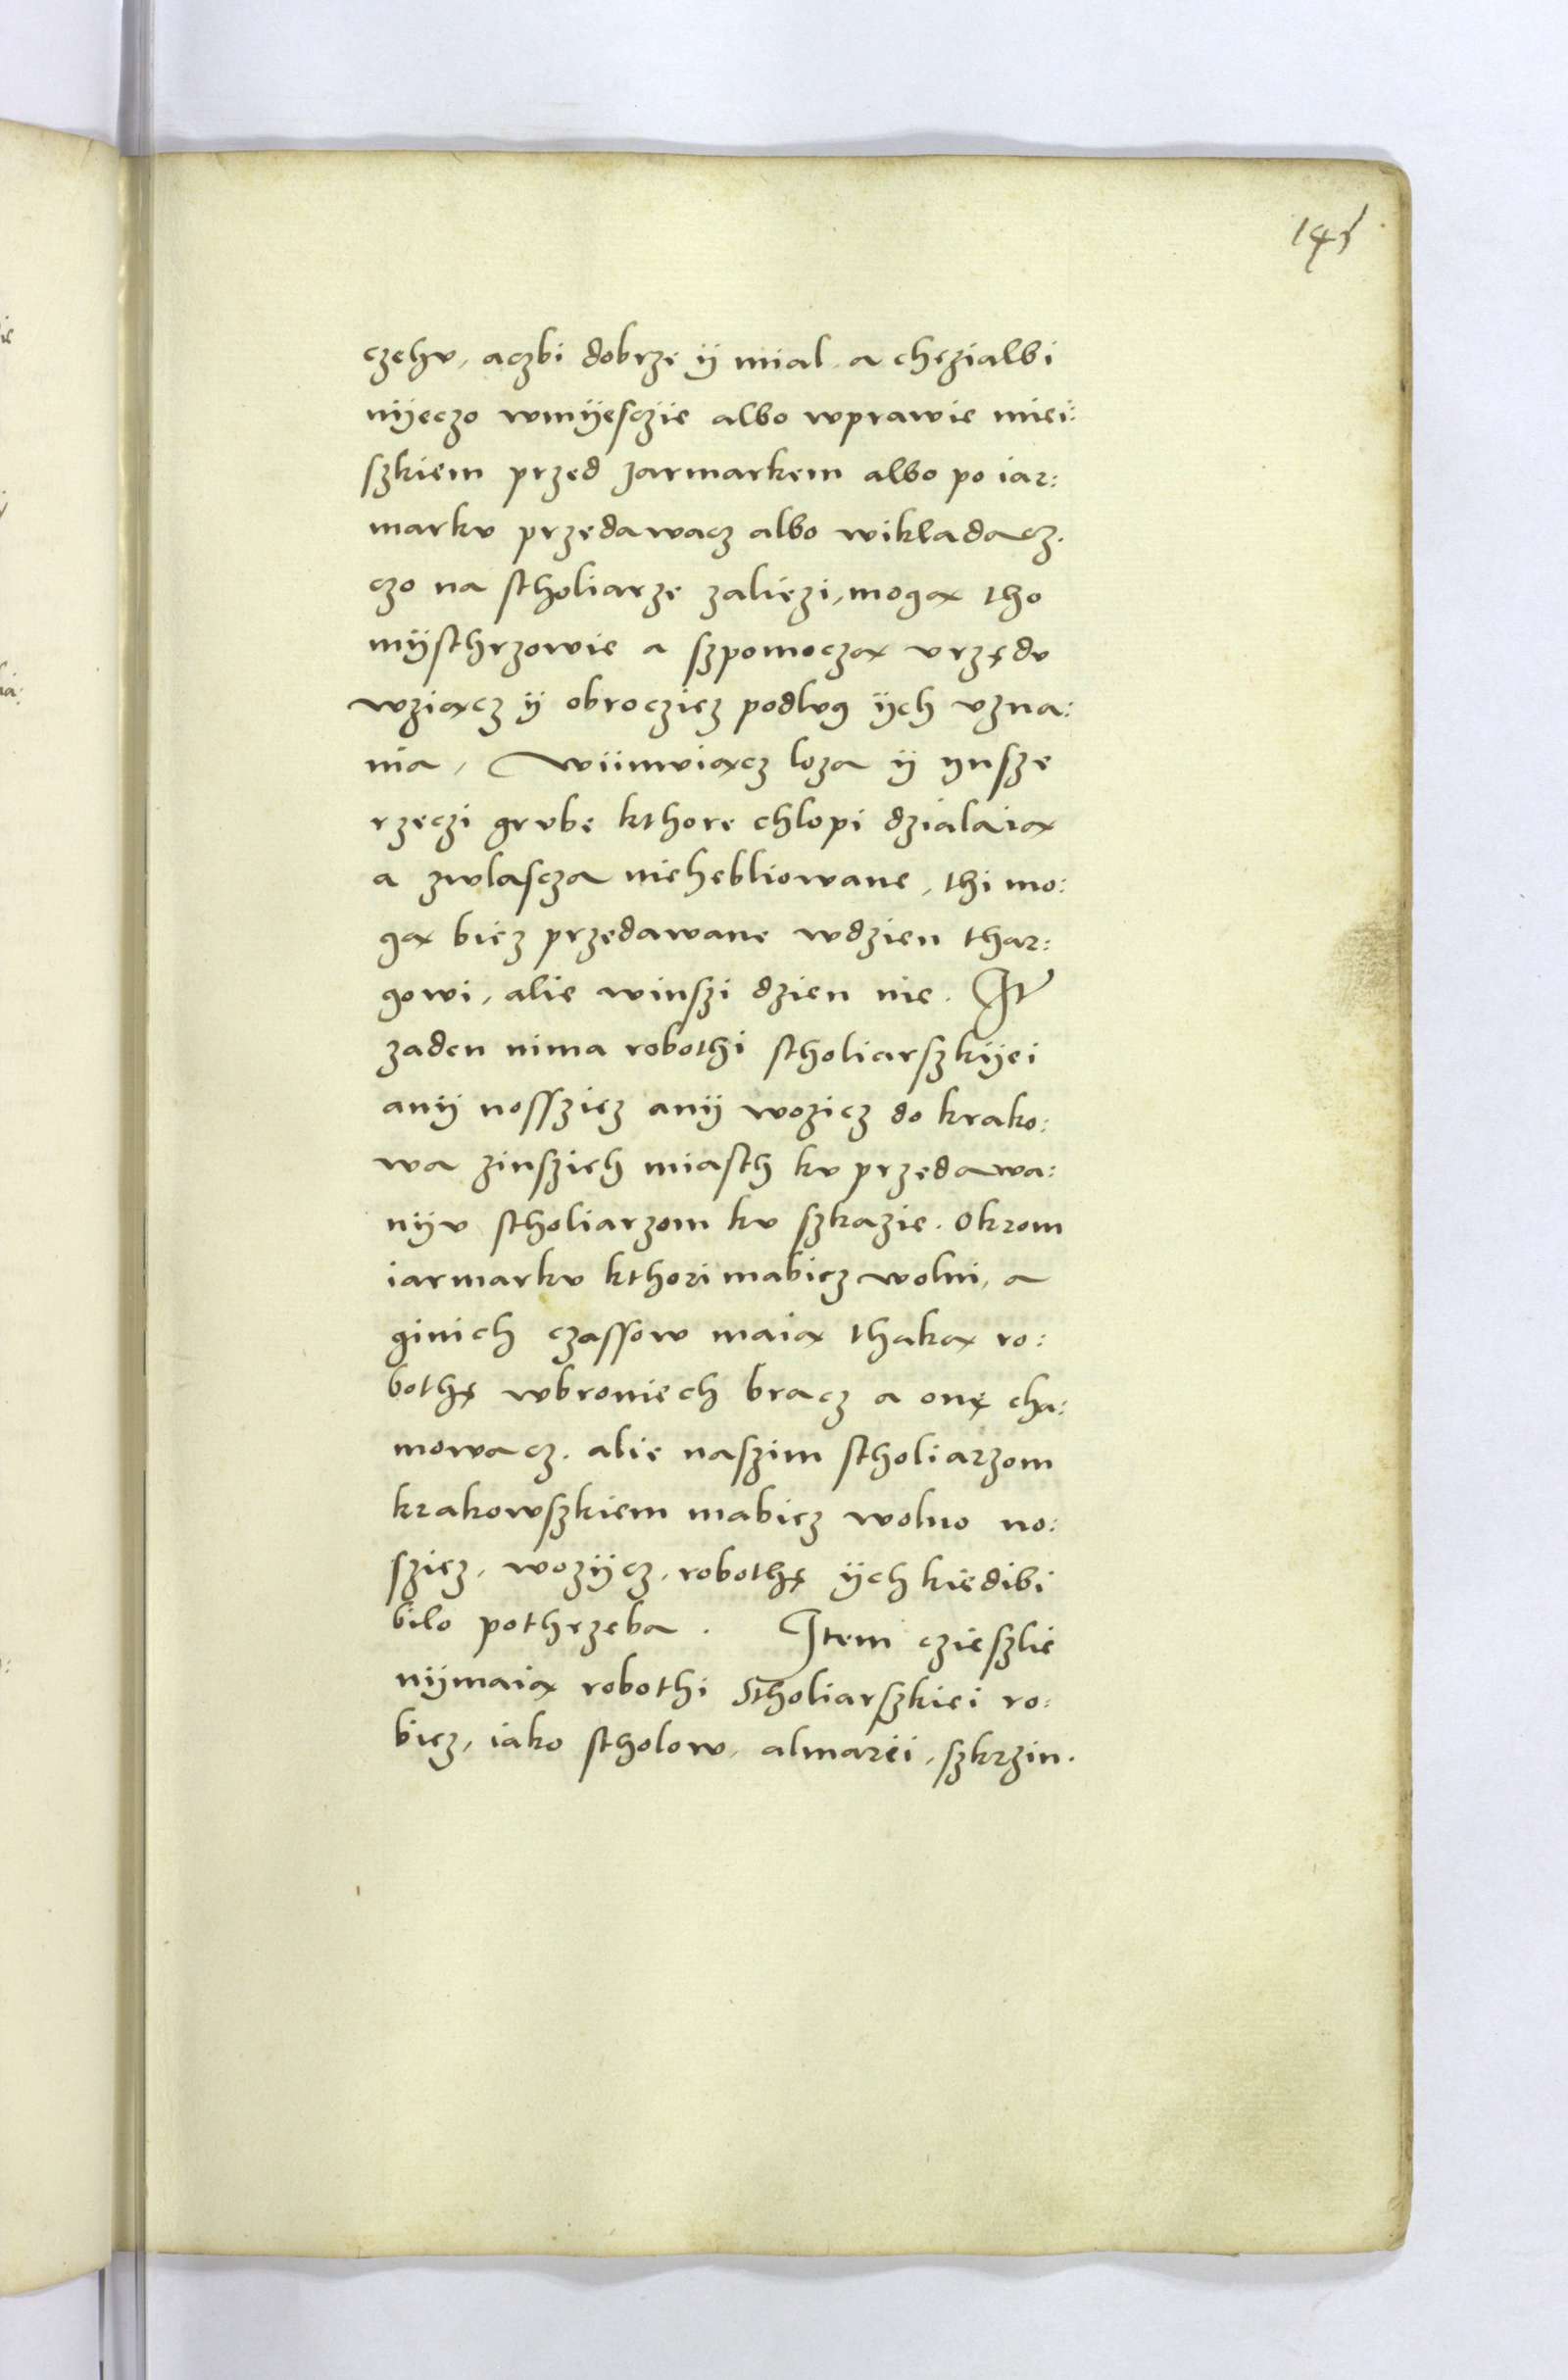 145
czchv, aczbi dobrze ÿ mial. a chczialbi
nÿeczo wmÿesczÿe albo wprawie miei:
szkiem przed Jarmarkem albo po iar:
markv przedawacz albo wikładacz.
czo na stholiarze zaliezi, mogą tho
mÿsthrzowie a szpomoczą vrzędv
wziącz ÿ obroczicz podlvg ÿch vzna:
nia, Wÿimviącz loza ÿ ynsze
rzeczi grvbe kthore chlopi dzialaią
a zwlascza niehebliowane, thi mo:
gą bicz przedawane wdzien thar:
gowi, alie winszi dzien nie. It
zaden nima robothi stholiarszkÿei
anÿ nosszicz anÿ wozicz do krako:
wa zinszich miasth kv przedawa:
nÿv stholiarzom kv szkazie. Okrom
iarmarkv kthori mabicz wolni, a
ginich czassow maią thaką ro:
bothę wbroniech bracz a onę cha:
mowacz. alie naszim stholiarzom
krakowszkiem mabicz wolno no:
szicz, wozÿcz, robothę ÿch kiedibi
bilo pothrzeba. Item cziesslie
nÿmaią robothi Stholiarszkiei ro:
bicz, iako stholow, almarii, szkrzin.